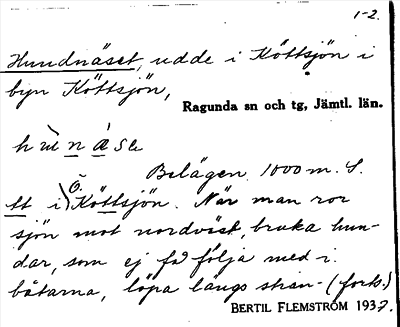 1-2.
Hundnäset, udde i Köttsjön i
byn Köttsjön,
Ragunda sn och tg, Jämtl. län.
Belägen 1000 m. S.
Ö.
tt i Köttsjön. När man ror
sjön mot nordväst, bruka hun-
dar, som ej få följa med i
båtarna, löpa längs stran- (forts.)
BERTIL FLEMSTRÖM 1937.